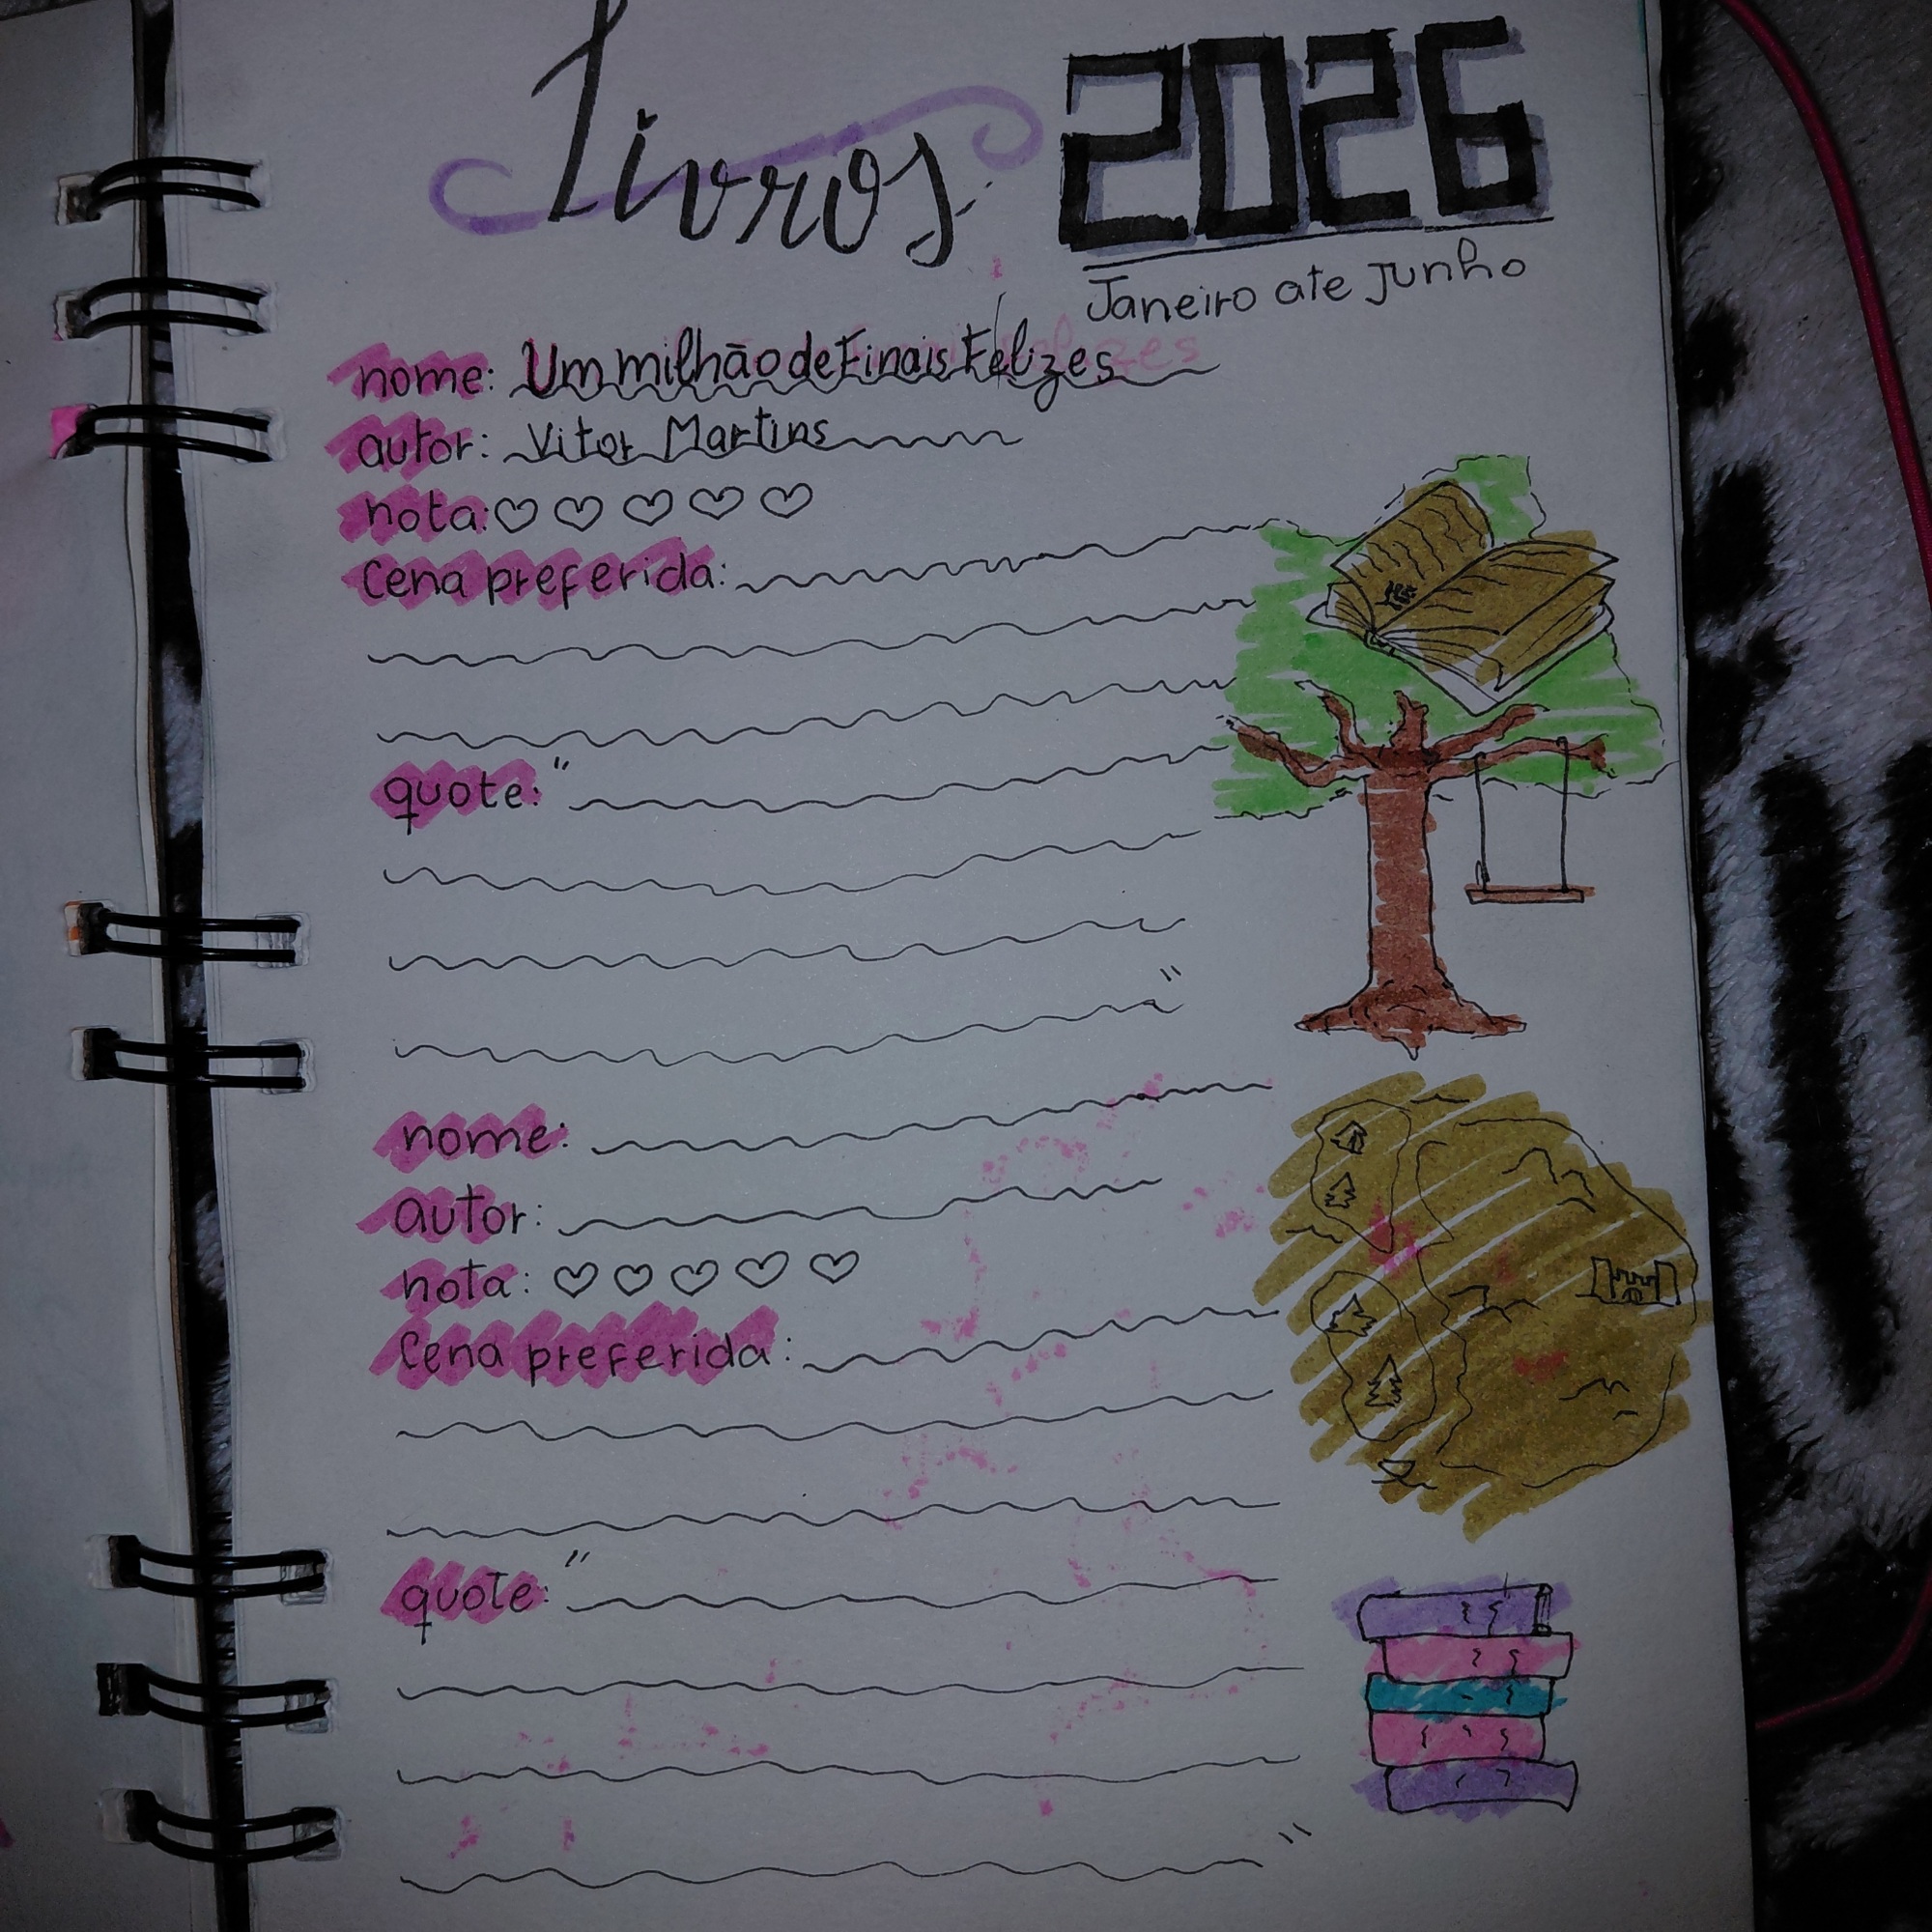 Livros 2026
Janeiro ate Junho
nome: Um milhão de Finais Felizes
autor: Vitor Martins
nota:
Cena preferida:
quote: "
"
nome:
autor:
nota:
Cena preferida:
quote: "
"